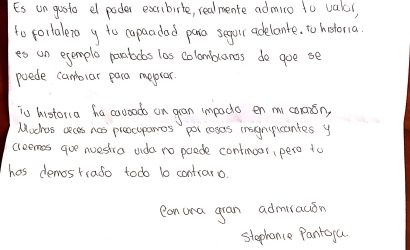 Es un gusto el poder escribirte, realmente admiro tu valor,
tu fortaleza y tu capacidad para seguir adelante. Tu historia
es un ejemplo para todos los colombianos de que se
puede cambiar para mejorar.
Tu historia ha causado un gran impacto en mi corazón,
Muchas veces nos preocupamos por cosas insignificantes y
creemos que nuestra vida no puede continuar, pero tu
has demostrado todo lo contrario.
Con una gran admiración
Stephanie Pantoja.